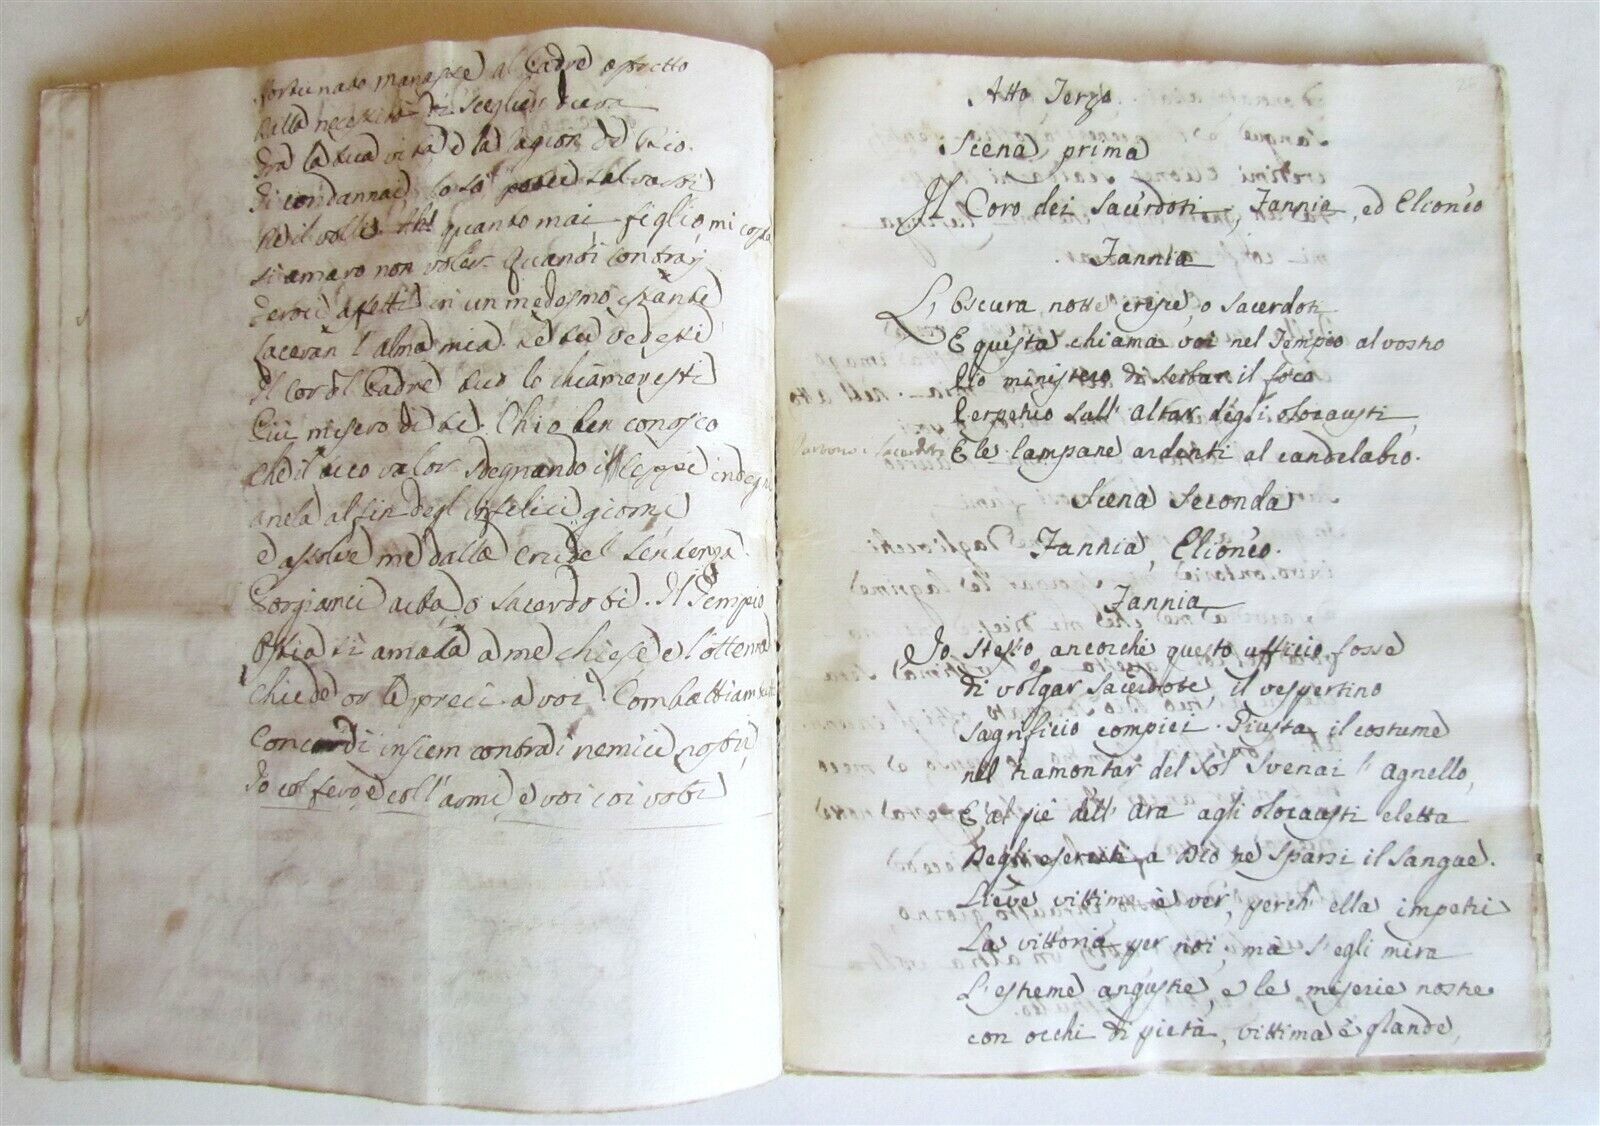 fortunato Manasse al Padre astretto
dalla necessità di scegliere
fra la tua vita, e la cagion di Dio.
Ti condannai, lo so, potei salvarti
né il volli. Ahi quanto mai, figlio, mi costa
si amaro non voler. Quanti contrarj
feroci affetti in un medesmo istante
laceran l'alma mia. Se tu vedessi
Il cor del Padre tuo lo chiameresti
Più misero di te. Ch'io ben conosco
che il tuo valor sdegnando il indegne
anela al fin degl'infelici giorni
e assolve me dalla crudel sentenza.
Porgiamci aita, o Sacerdoti. Il Tempio
Ostia sì amata a me chiese e l'ottenne
chiede or le preci a voi. Combattiam
Concordi insiem contra i nemici nostri,
Io col ferro e coll'armi, e voi coi voti
Atto Terzo.
Scena prima
Il Coro dei Sacerdoti, Jannia, ed Elioneo
Jannia
L'Oscura notte cresce, o Sacerdoti
E questa chiama voi nel Tempio al vostro
Pio ministero di serbar il foco
Perpetuo sull'altar degli olocausti,
Partono i Sacerdoti
E le lampane ardenti al candelabro.
Scena Seconda
Jannia, Elioneo.
Jannia
Io stesso, ancorchè questo ufficio fosse
di volgar Sacerdote, il vespertino
Sagrificio compiei. Giusta il costume
nel tramontar del Sol Svenai l'agnello,
E al piè dell'Ara agli olocausti eletta
Degli eserciti a Dio ne sparsi il sangue.
Lieve vittima è ver, perch'ella impetri
La vittoria per noi; mà s'egli mira
L'estreme angustie, e le miserie nostre
con occhi di pietà, vittima è glande,